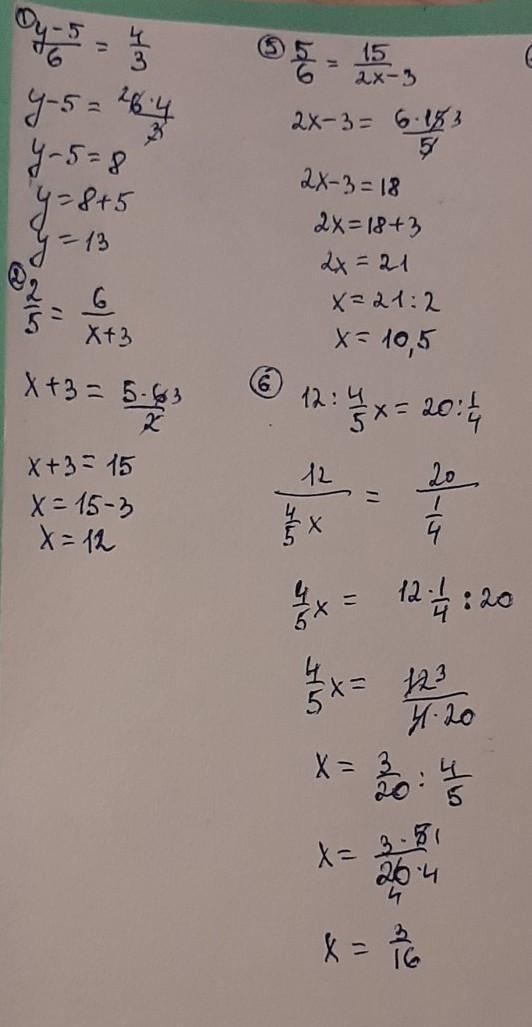 ① (y-5)/6 = 4/3
y-5 = (²6·4)/3
y-5=8
y=8+5
y=13
② 2/5 = 6/(x+3)
x+3 = (5·6 3)/2
x+3=15
x=15-3
x=12
⑤ 5/6 = 15/(2x-3)
2x-3= (6·15 3)/5
2x-3=18
2x=18+3
2x=21
x=21:2
x=10,5
⑥ 12:4/5x=20:1/4
12/(4/5 x) = 20/(1/4)
4/5x = 12·1/4 : 20
4/5x= 12³/(4·20)
x= 3/20 : 4/5
x= (3·5 1)/(20·4) 4
x = 3/16